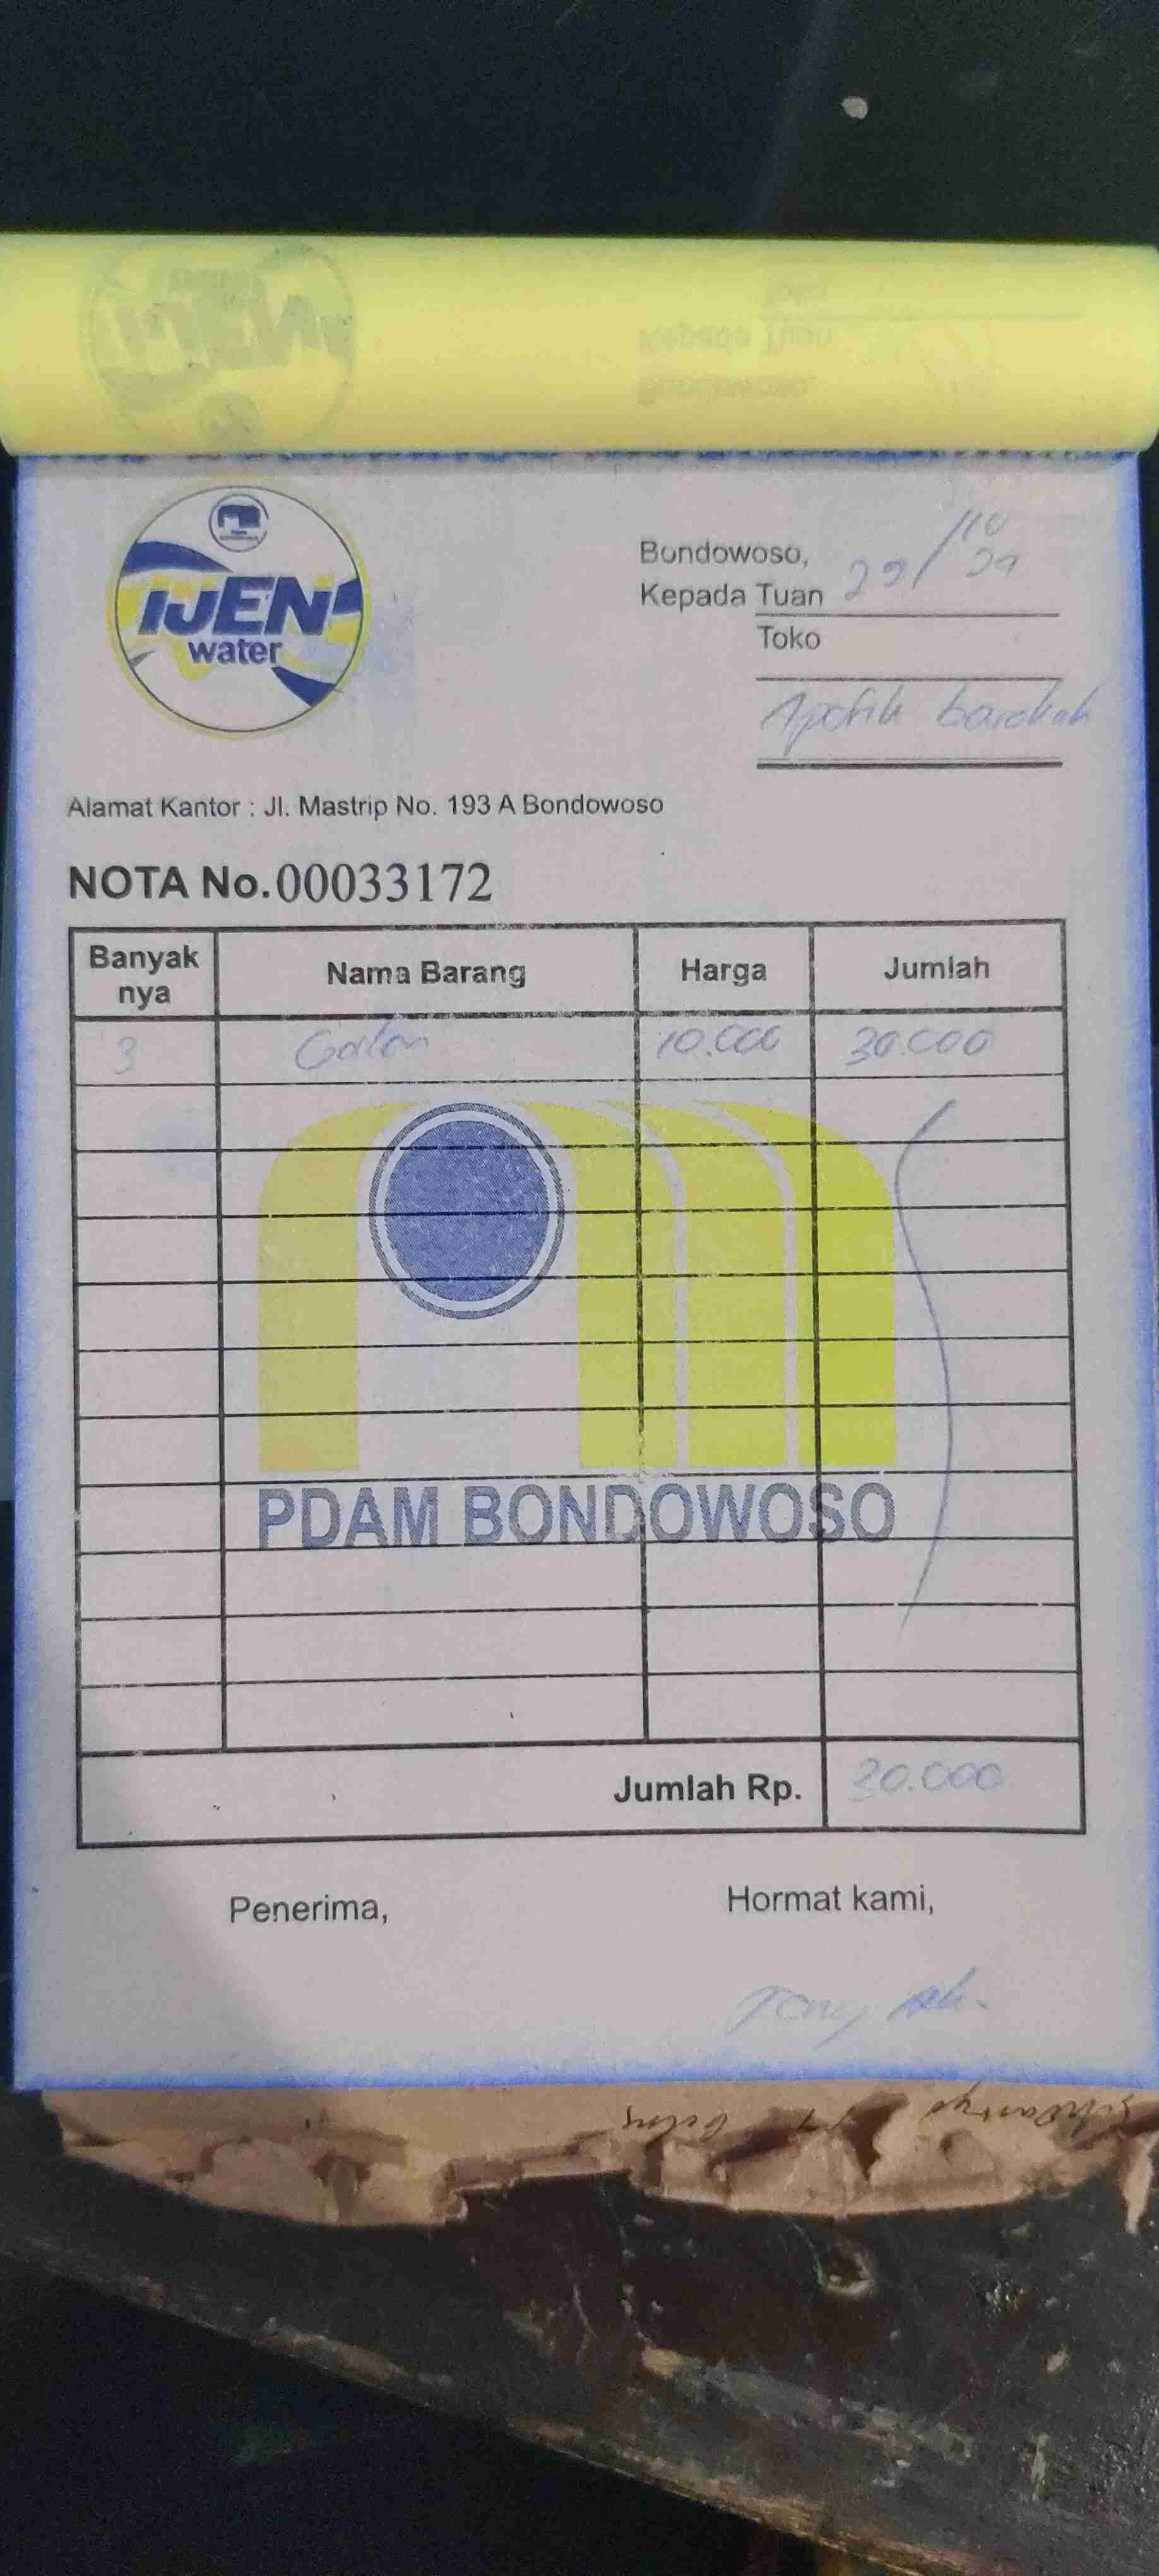 IJEN
water
Bondowoso,
Kepada Tuan
Toko
Apotik barokah
Alamat Kantor : Jl. Mastrip No. 193 A Bondowoso
NOTA No. 00033172
Banyak nya Nama Barang Harga Jumlah
3 Galon 10.000 30.000
PDAM BONDOWOSO
Jumlah Rp. 30.000
Penerima, Hormat kami,